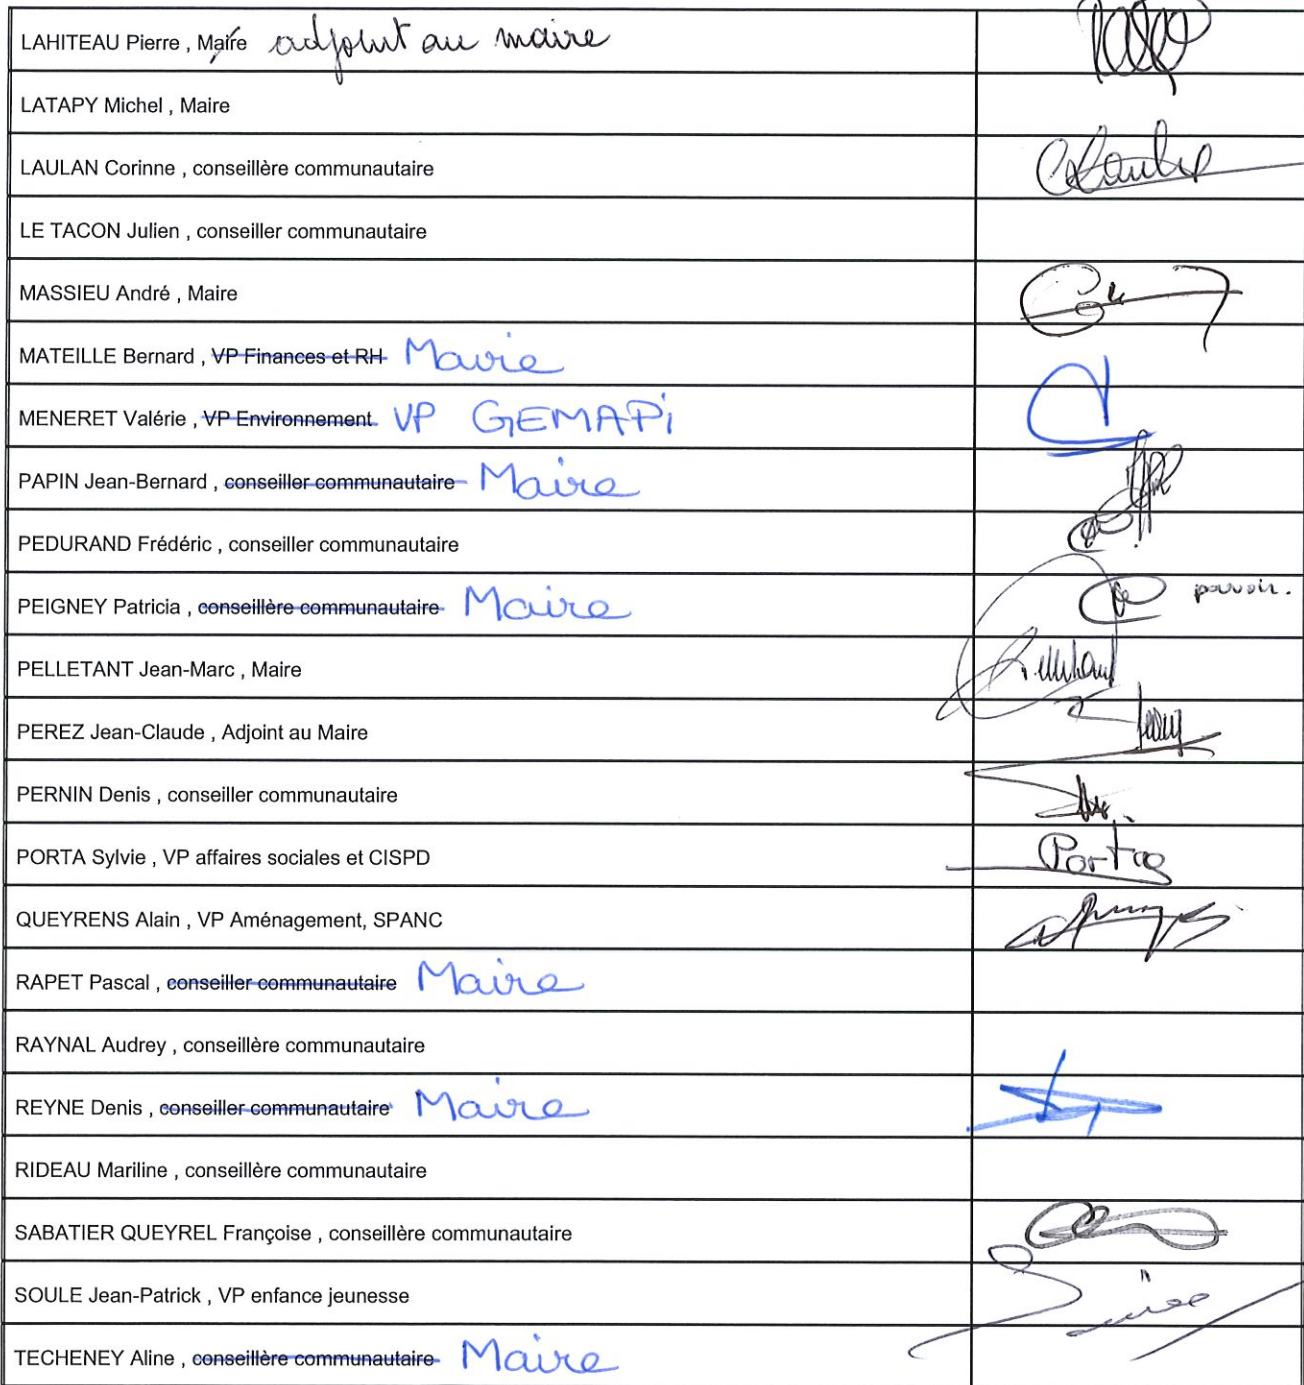 LAHITEAU Pierre , Maire adjoint au maire
LATAPY Michel , Maire
LAULAN Corinne , conseillère communautaire
LE TACON Julien , conseiller communautaire
MASSIEU André , Maire
MATEILLE Bernard , VP Finances et RH Mairie
MENERET Valérie , VP Environnement VP GEMAPi
PAPIN Jean-Bernard , conseiller communautaire Maire
PEDURAND Frédéric , conseiller communautaire
PEIGNEY Patricia , conseillère communautaire Maire pouvoir.
PELLETANT Jean-Marc , Maire
PEREZ Jean-Claude , Adjoint au Maire
PERNIN Denis , conseiller communautaire
PORTA Sylvie , VP affaires sociales et CISPD Porta
QUEYRENS Alain , VP Aménagement, SPANC
RAPET Pascal , conseiller communautaire Maire
RAYNAL Audrey , conseillère communautaire
REYNE Denis , conseiller communautaire Maire
RIDEAU Mariline , conseillère communautaire
SABATIER QUEYREL Françoise , conseillère communautaire
SOULE Jean-Patrick , VP enfance jeunesse
TECHENEY Aline , conseillère communautaire Maire